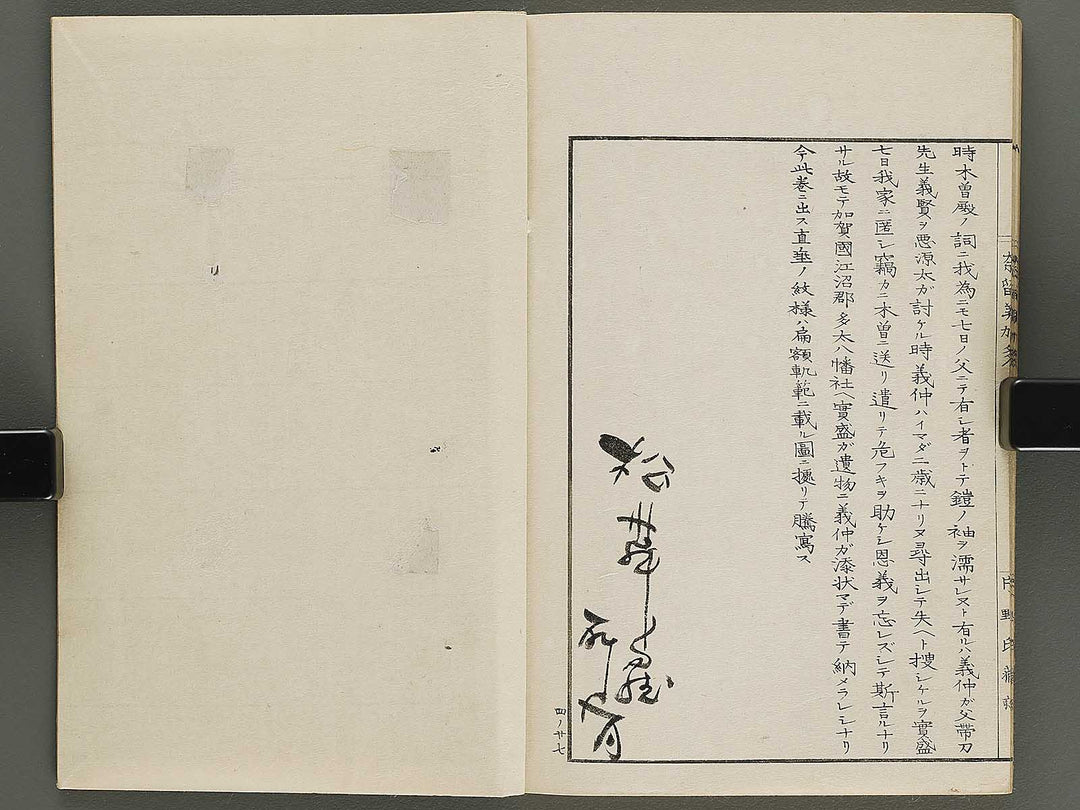 時木曽殿ノ詞ニ我為ニモ七日ノ父ニテ有シ者ヲトテ鎧ノ袖ヲ濡サレヌト有ルハ義仲ガ父帶刀
先生義賢ヲ悪源太ガ討ケル時義仲ハイマダ二歳ニナリヌ尋出シテ失ヘト捜シケルヲ實盛
七日我家ニ匿シ竊カニ木曽ニ送リ遣リテ危フキヲ助ケシ恩義ヲ忘レズシテ斯言ルナリ
サル故モテ加賀國江沼郡多太八幡社ヘ實盛ガ遺物ニ義仲ガ添状マデ書テ納メラレシナリ
今此巻ニ出ス直垂ノ紋様ハ扁額軌範ニ載ル圖ニ據リテ騰寫ス
四ノ廿七